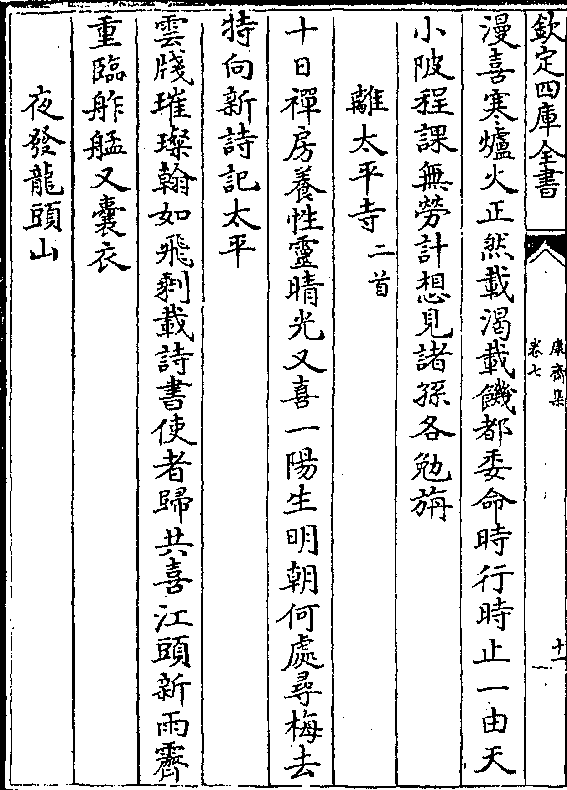 欽定四庫全書
康齋集
卷七
十一
漫喜寒爐火正然載渴載饑都委命時行時止一由天
小陂程課無勞計想見諸孫各勉旃
離太平寺二首
十日禪房養性靈晴光又喜一陽生明朝何處尋梅去
特向新詩記太平
雲牋璀璨翰如飛剩載詩書使者歸共喜江頭新雨霽
重臨舴艋又囊衣
夜發龍頭山